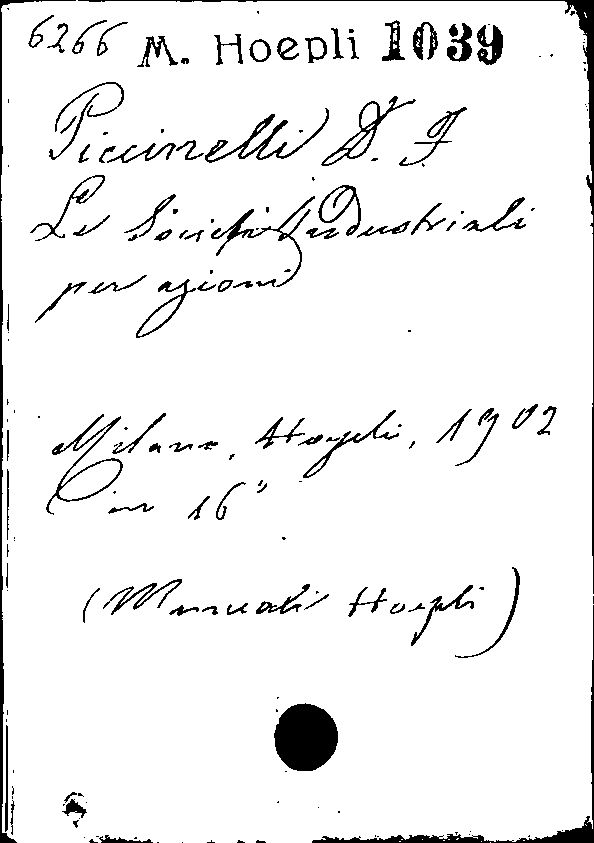 6266 M. Hoepli 1039
Piccinelli D. F
Le Società Industriali
per azioni
Milano, Hoepli, 1902
in 16°
(Manuali Hoepli)